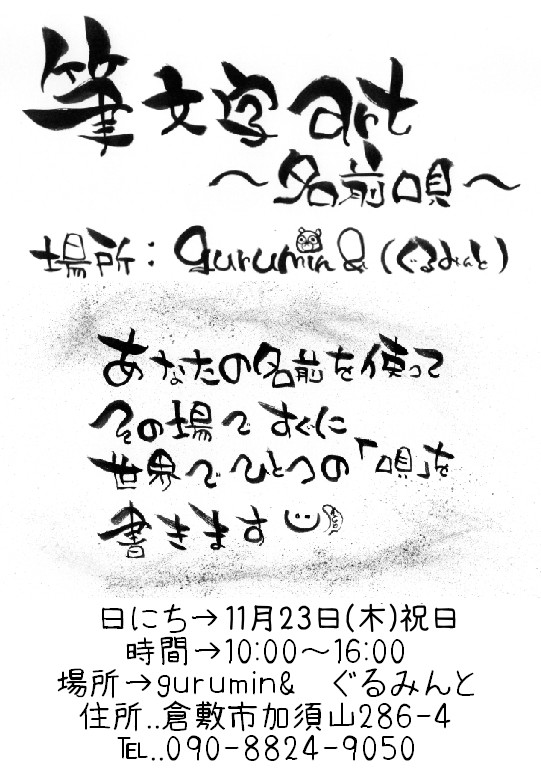 筆文字art
～名前唄～
場所：gurumin&（ぐるみんと）
あなたの名前を使って
その場ですぐに
世界でひとつの「唄」を
書きます
日にち→11月23日(木)祝日
時間→10:00～16:00
場所→gurumin&　ぐるみんと
住所..倉敷市加須山286-4
TEL..090-8824-9050